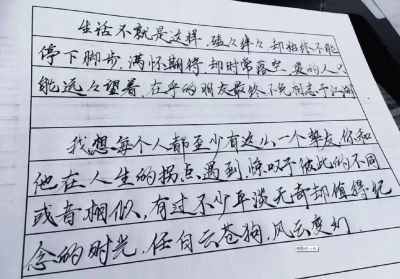 生活不就是这样，磕々绊々却始终不能
停下脚步，满怀期待，却时常落空，爱的人只
能远々望着，在乎的朋友最终不说别念于江湖
我想每个人都至少有这么一个挚友，你和
他在人生的拐点遇到，惊叹于彼此的不同
或者相似，有过不少平淡无奇却值得纪
念的时光，任白云苍狗，风云变幻